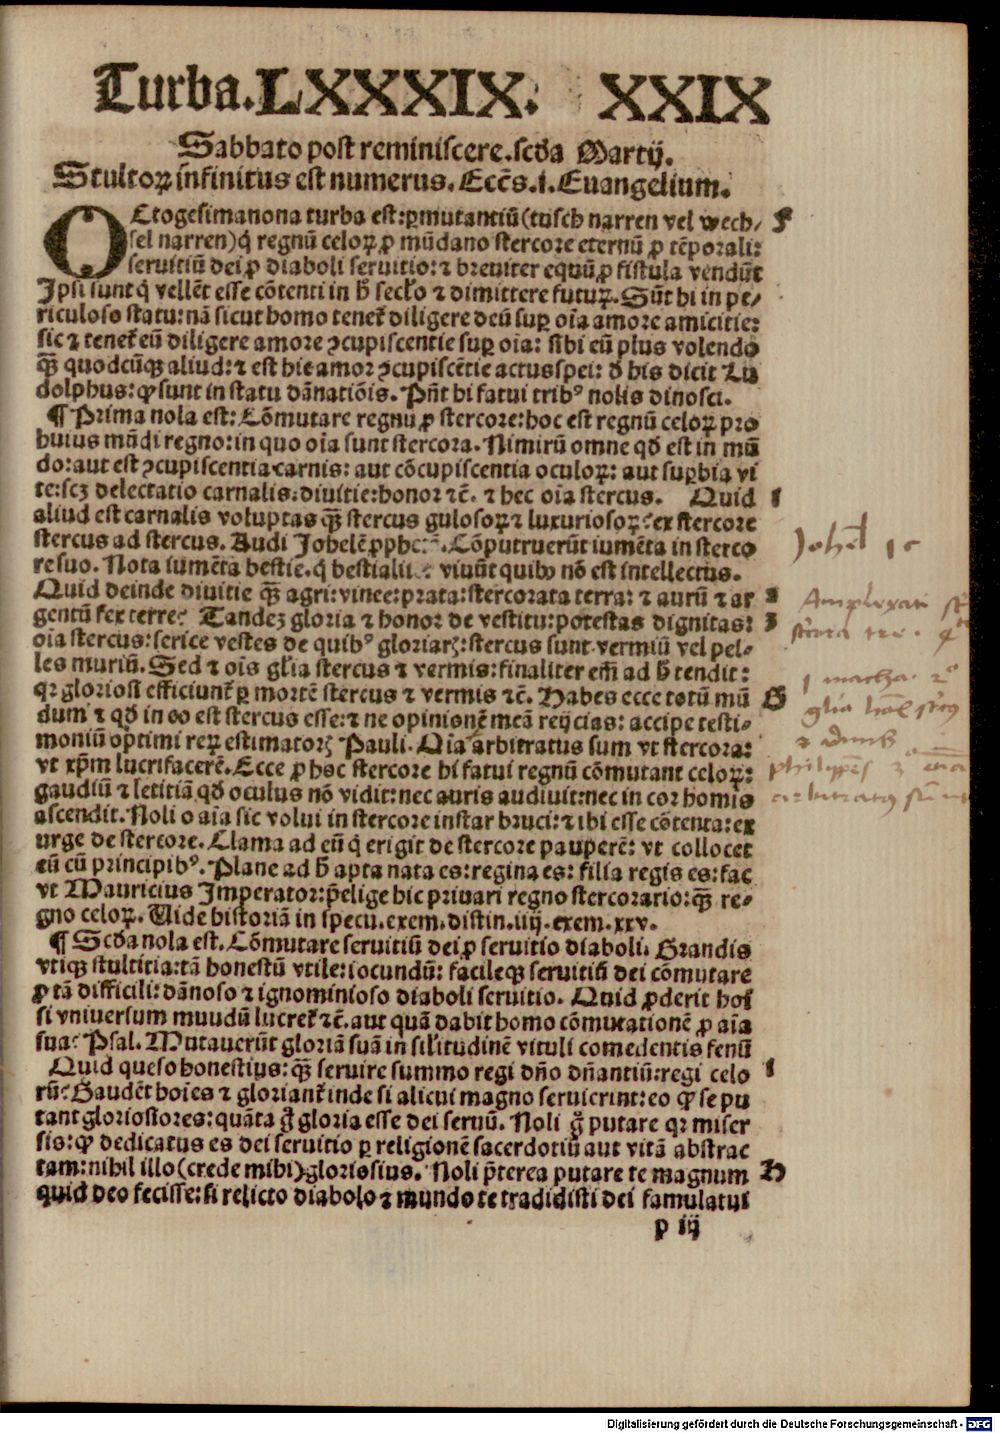 Turba. LXXXIX. XXIX
Sabbato post reminiscere. scđa Martij.
Stultoꝝ infinitus est numerus. Ecc̄s. i. Euangelium.
OCtogesimanona turba est: ꝑmutantiū (tusch narren vel wech/ F
sel narren) q̇ regnū celoꝝ ꝓ mūdano stercore eternū ꝓ tēporali:
seruitiū dei ꝓ diaboli seruitio: ⁊ breuiter equū ꝓ fistula vendūt
Ipsi sunt q̇ vellēt esse cōtenti in h̄ seclo ⁊ dimittere futuꝝ. Sūt hi in pe/
riculoso statu: nā sicut homo tenet̄ diligere deū suꝑ oīa amore amicitie:
sic ⁊ tenet̄ eū diligere amore ꝯcupiscentie suꝑ oīa: sibi eū plus volendo
qꝫ̄ quodcūqꝫ aliud: ⁊ est hic amor ꝯcupiscētie actus spei: đ his dicit Lu
dolphus: ꝙ sunt in statu dānatiōis. Pn̄t hi fatui tribꝰ nolis dinosci.
¶ Prima nola est: Cōmutare regnū ꝓ stercore: hoc est regnū celoꝝ pro
huius mūdi regno: in quo oīa sunt stercora. Nimirū omne qđ est in mū
do: aut est ꝯcupiscentia carnis: aut cōcupiscentia oculoꝝ: aut suꝑbia vi
te: scꝫ delectatio carnalis. diuitie: honor ⁊c̄. ⁊ hec oīa stercus. Quid 1
aliud est carnalis voluptas qꝫ̄ stercus gulosoꝝ ⁊ luxuriosoꝝ? ex stercore
stercus ad stercus. Audi Johelē ꝓphe. Cōputruerūt iumēta in sterco
re suo. Nota iumēta bestie. q̇ bestialit viuūt quibꝰ nō est intellectus.
Quid deinde diuitie qꝫ̄ agri: vinee: prata: stercorata terra: ⁊ aurū ⁊ ar 2
gentū fex terre? Tandeꝫ gloria ⁊ honor de vestitu: potestas dignitas: 3
oīa stercus: serice vestes de quibꝰ gloriaꝶ: stercus sunt vermiū vel pel-
les muriū. Sed ⁊ oīs gl̄ia stercus ⁊ vermis: finaliter em̄ ad h̄ tendit:
qꝛ gloriosi efficiunt̄ ꝑ mortē stercus ⁊ vermis ⁊c̄. Habes ecce totū mū G
dum ⁊ qđ in eo est stercus esse: ⁊ ne opinionē meā reijcias: accipe testi-
moniū optimi reꝝ estimatorꝫ Pauli. Oīa arbitratus sum vt stercora:
vt xp̄m lucrifacerē. Ecce ꝓ hoc stercore hi fatui regnū cōmutant celoꝝ:
gaudiū ⁊ letitiā qđ oculus nō vidit: nec auris audiuit: nec in cor homīs
ascendit. Noli o aīa sic volui in stercore instar bruci: ⁊ ibi esse cōtenta: ex
urge de stercore. Clama ad eū q̇ erigit de stercore pauperē: vt collocet
eū cū principibꝰ. Plane ad h̄ apta nata es: regina es: filia regis es: fac
vt Mauricius Imperator: p̄elige hic priuari regno stercorario: qꝫ̄ re-
gno celoꝝ. Vide historiā in specu. exem. distin. iiij. exem. xxv.
¶ Scđa nola est. Cōmutare seruitiū dei ꝓ seruitio diaboli. Grandis
vtiqꝫ stultitia: tā honestū vtile: iocundū: facileqꝫ seruitiū dei cōmutare
ꝓ tā difficili: dānoso ⁊ ignominioso diaboli seruitio. Quid ꝓderit hoī
si vniuersum muudū lucret̄ ⁊c̄. aut quā dabit homo cōmutationē ꝓ aīa
sua? Psal. Mutauerūt gloriā suā in sil̄itudinē vituli comedentis fenū
Quid queso honestius: qꝫ̄ seruire summo regi dn̄o dn̄antiū: regi celo 1
rū? Gaudēt hoīes ⁊ gloriant̄ inde si alicui magno seruierint: eo ꝙ se pu
tant gloriosiores: quāta g̊ gloria esse dei seruū. Noli g̊ putare qꝛ miser
sis: ꝙ dedicatus es dei seruitio ꝑ religionē sacerdotiū aut vitā abstrac
tam: nihil illo (crede mihi) gloriosius. Noli p̄terea putare te magnum H
quid deo fecisse: si relicto diabolo ⁊ mundo te tradidisti dei famulatui
p iij
Johel 1 c
Amplexati
1 macha. 2°
gl̄ia
philippēs 3
arbitratus
Digitalisierung gefördert durch die Deutsche Forschungsgemeinschaft - DFG